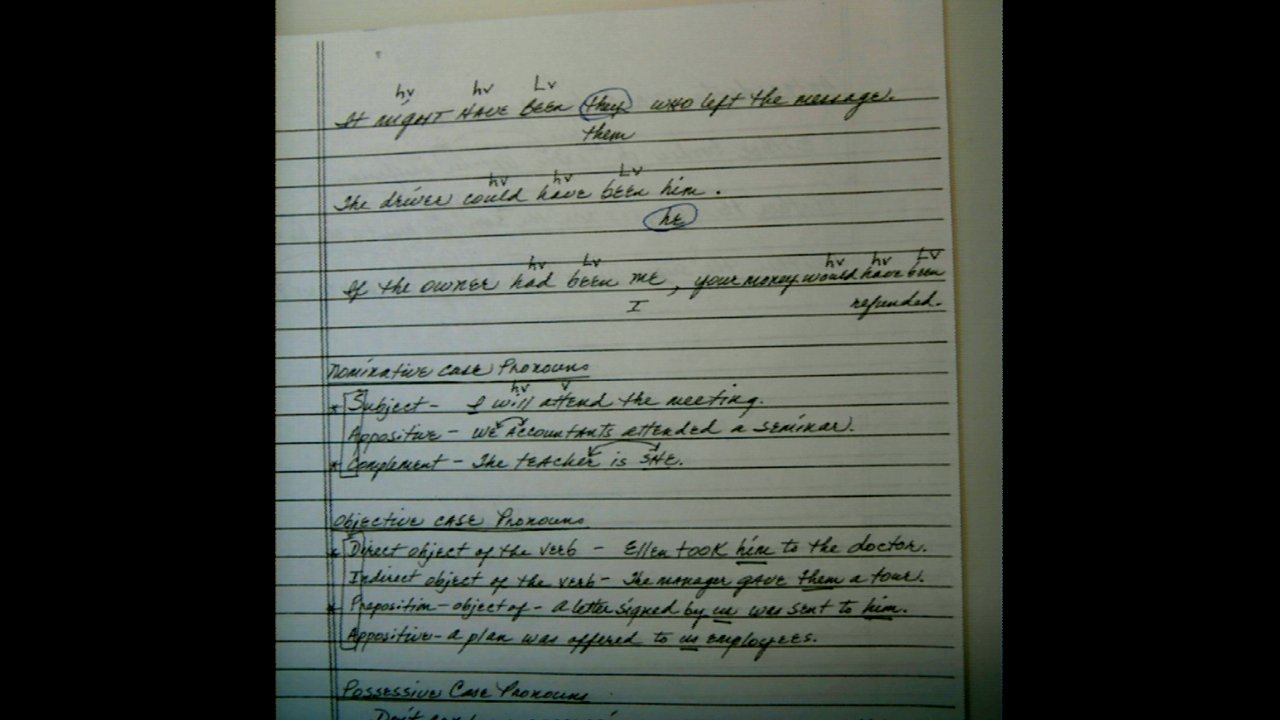 hv hv Lv
It might have been they who left the message.
them
hv hv Lv
The driver could have been him.
he
hv Lv hv hv LV
If the owner had been me, your money would have been
I refunded.
Nominative Case Pronouns
hv v
* Subject - I will attend the meeting.
Appositive - we Accountants attended a seminar.
* Complement - The teacher is SHE.
Objective Case Pronouns
* Direct object of the verb - Ellen took him to the doctor.
Indirect object of the verb - The manager gave them a tour.
* Preposition - object of - a letter signed by us was sent to him.
Appositive - a plan was offered to us employees.
Possessive Case Pronouns